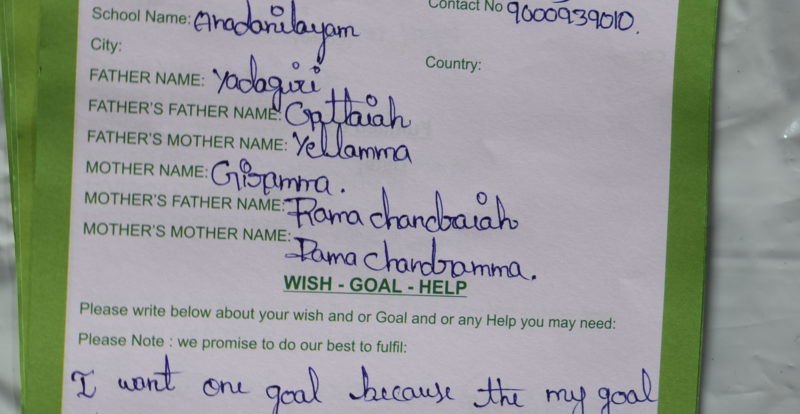 School Name: Anadanilayam Contact No 9000939010.
City: Country:
FATHER NAME: Yadagiri
FATHER'S FATHER NAME: Gattaiah
FATHER'S MOTHER NAME: Yellamma
MOTHER NAME: Gisamma.
MOTHER'S FATHER NAME: Rama chandraiah
MOTHER'S MOTHER NAME: Rama chandramma.
WISH - GOAL - HELP
Please write below about your wish and or Goal and or any Help you may need:
Please Note : we promise to do our best to fulfil:
I want one goal because the my goal